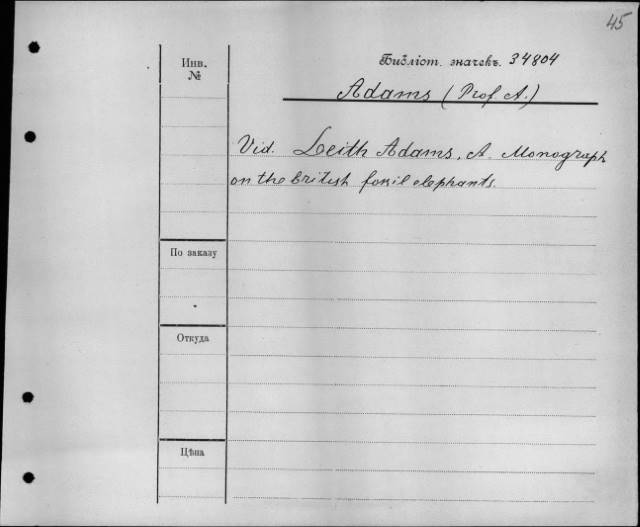 45
Инв.
№
Библіот. значекъ. 34804
Adams (Prof. A.)
Vid. Leith Adams, A. Monograph
on the british fossil elephants.
По заказу
Откуда
Цѣна